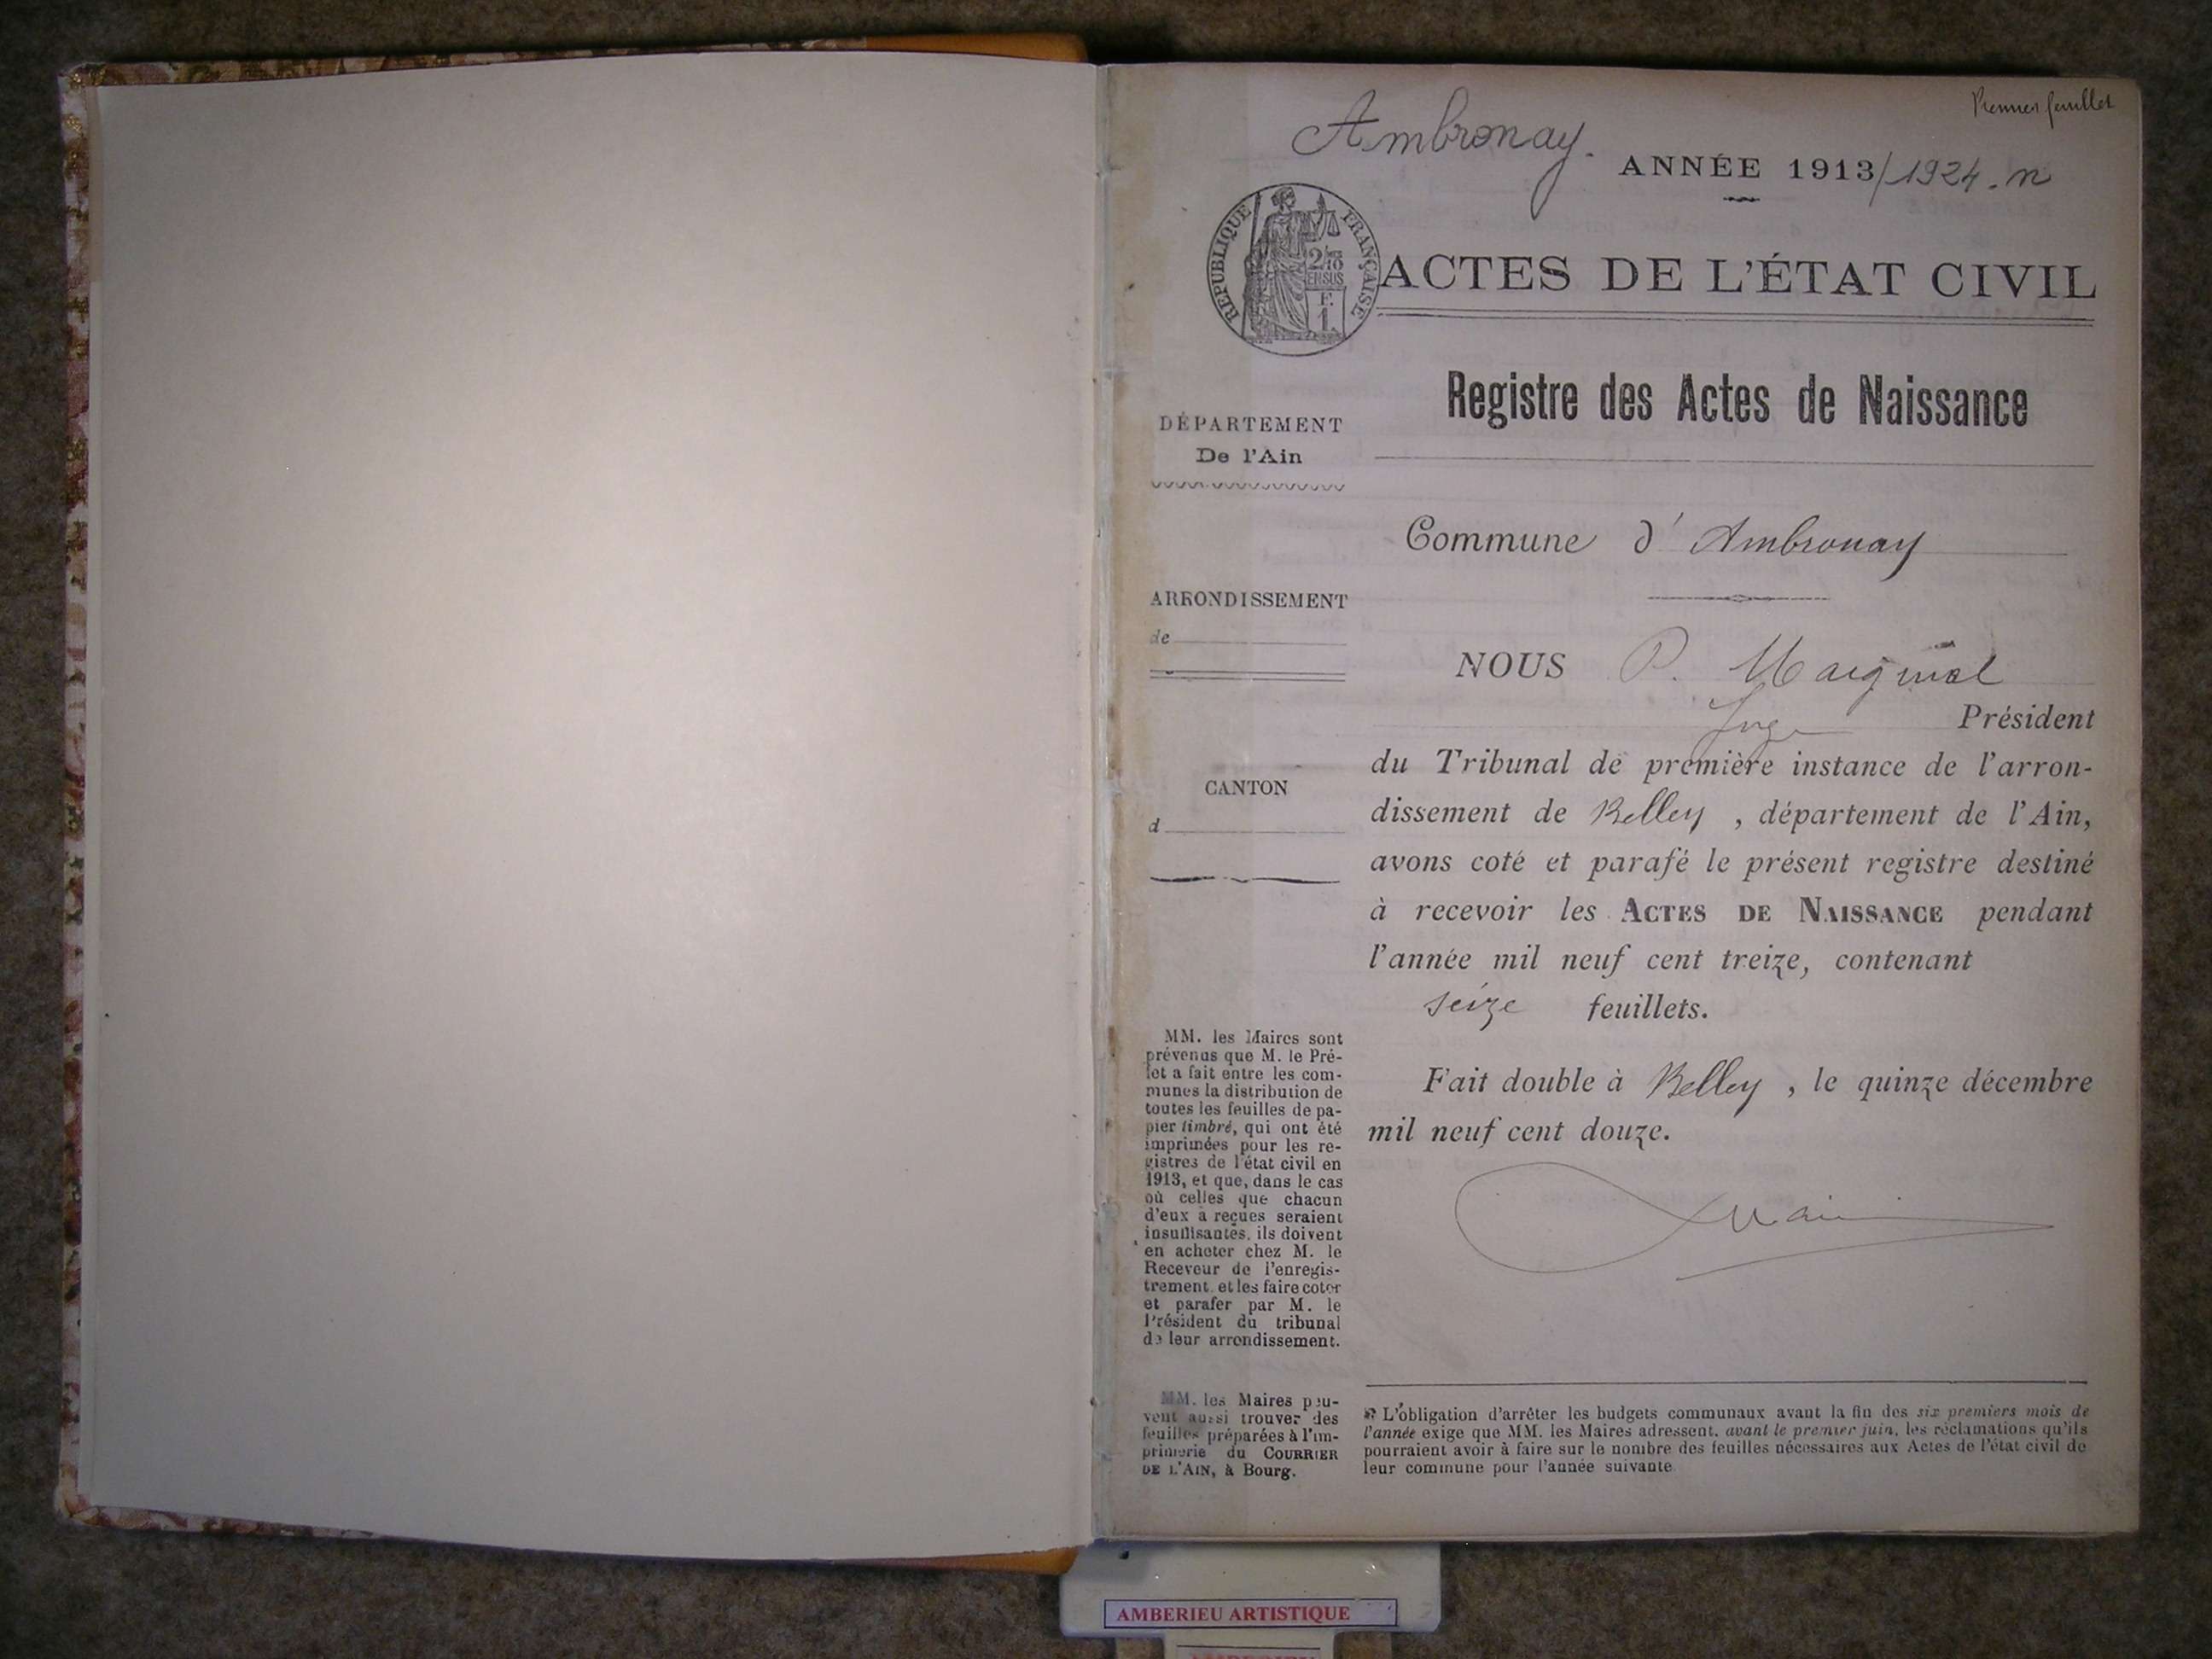 Premier feuillet
Ambronay.
ANNÉE 1913/1924. n
RÉPUBLIQUE FRANÇAISE
2/10
EN SUS
F.
1.
ACTES DE L'ÉTAT CIVIL
Registre des Actes de Naissance
DÉPARTEMENT
De l'Ain
Commune d' Ambronay
ARRONDISSEMENT
de
NOUS P.
Juge Président
du Tribunal de première instance de l'arron-
dissement de Belley , département de l'Ain,
avons coté et parafé le présent registre destiné
à recevoir les ACTES DE NAISSANCE pendant
l'année mil neuf cent treize, contenant
seize feuillets.
Fait double à Belley , le quinze décembre
mil neuf cent douze.
CANTON
d
MM. les Maires sont
prévenus que M. le Pré-
fet a fait entre les com-
munes la distribution de
toutes les feuilles de pa-
pier timbré, qui ont été
imprimées pour les re-
gistres de l'état civil en
1913, et que, dans le cas
où celles que chacun
d'eux a reçues seraient
insuffisantes, ils doivent
en acheter chez M. le
Receveur de l'enregis-
trement et les faire coter
et parafer par M. le
Président du tribunal
de leur arrondissement.
MM. les Maires peu-
vent aussi trouver des
feuilles préparées à l'im-
primerie du COURRIER
DE L'AIN, à Bourg.
L'obligation d'arrêter les budgets communaux avant la fin des six premiers mois de
l'année exige que MM. les Maires adressent, avant le premier juin, les réclamations qu'ils
pourraient avoir à faire sur le nombre des feuilles nécessaires aux Actes de l'état civil de
leur commune pour l'année suivante.
AMBERIEU ARTISTIQUE